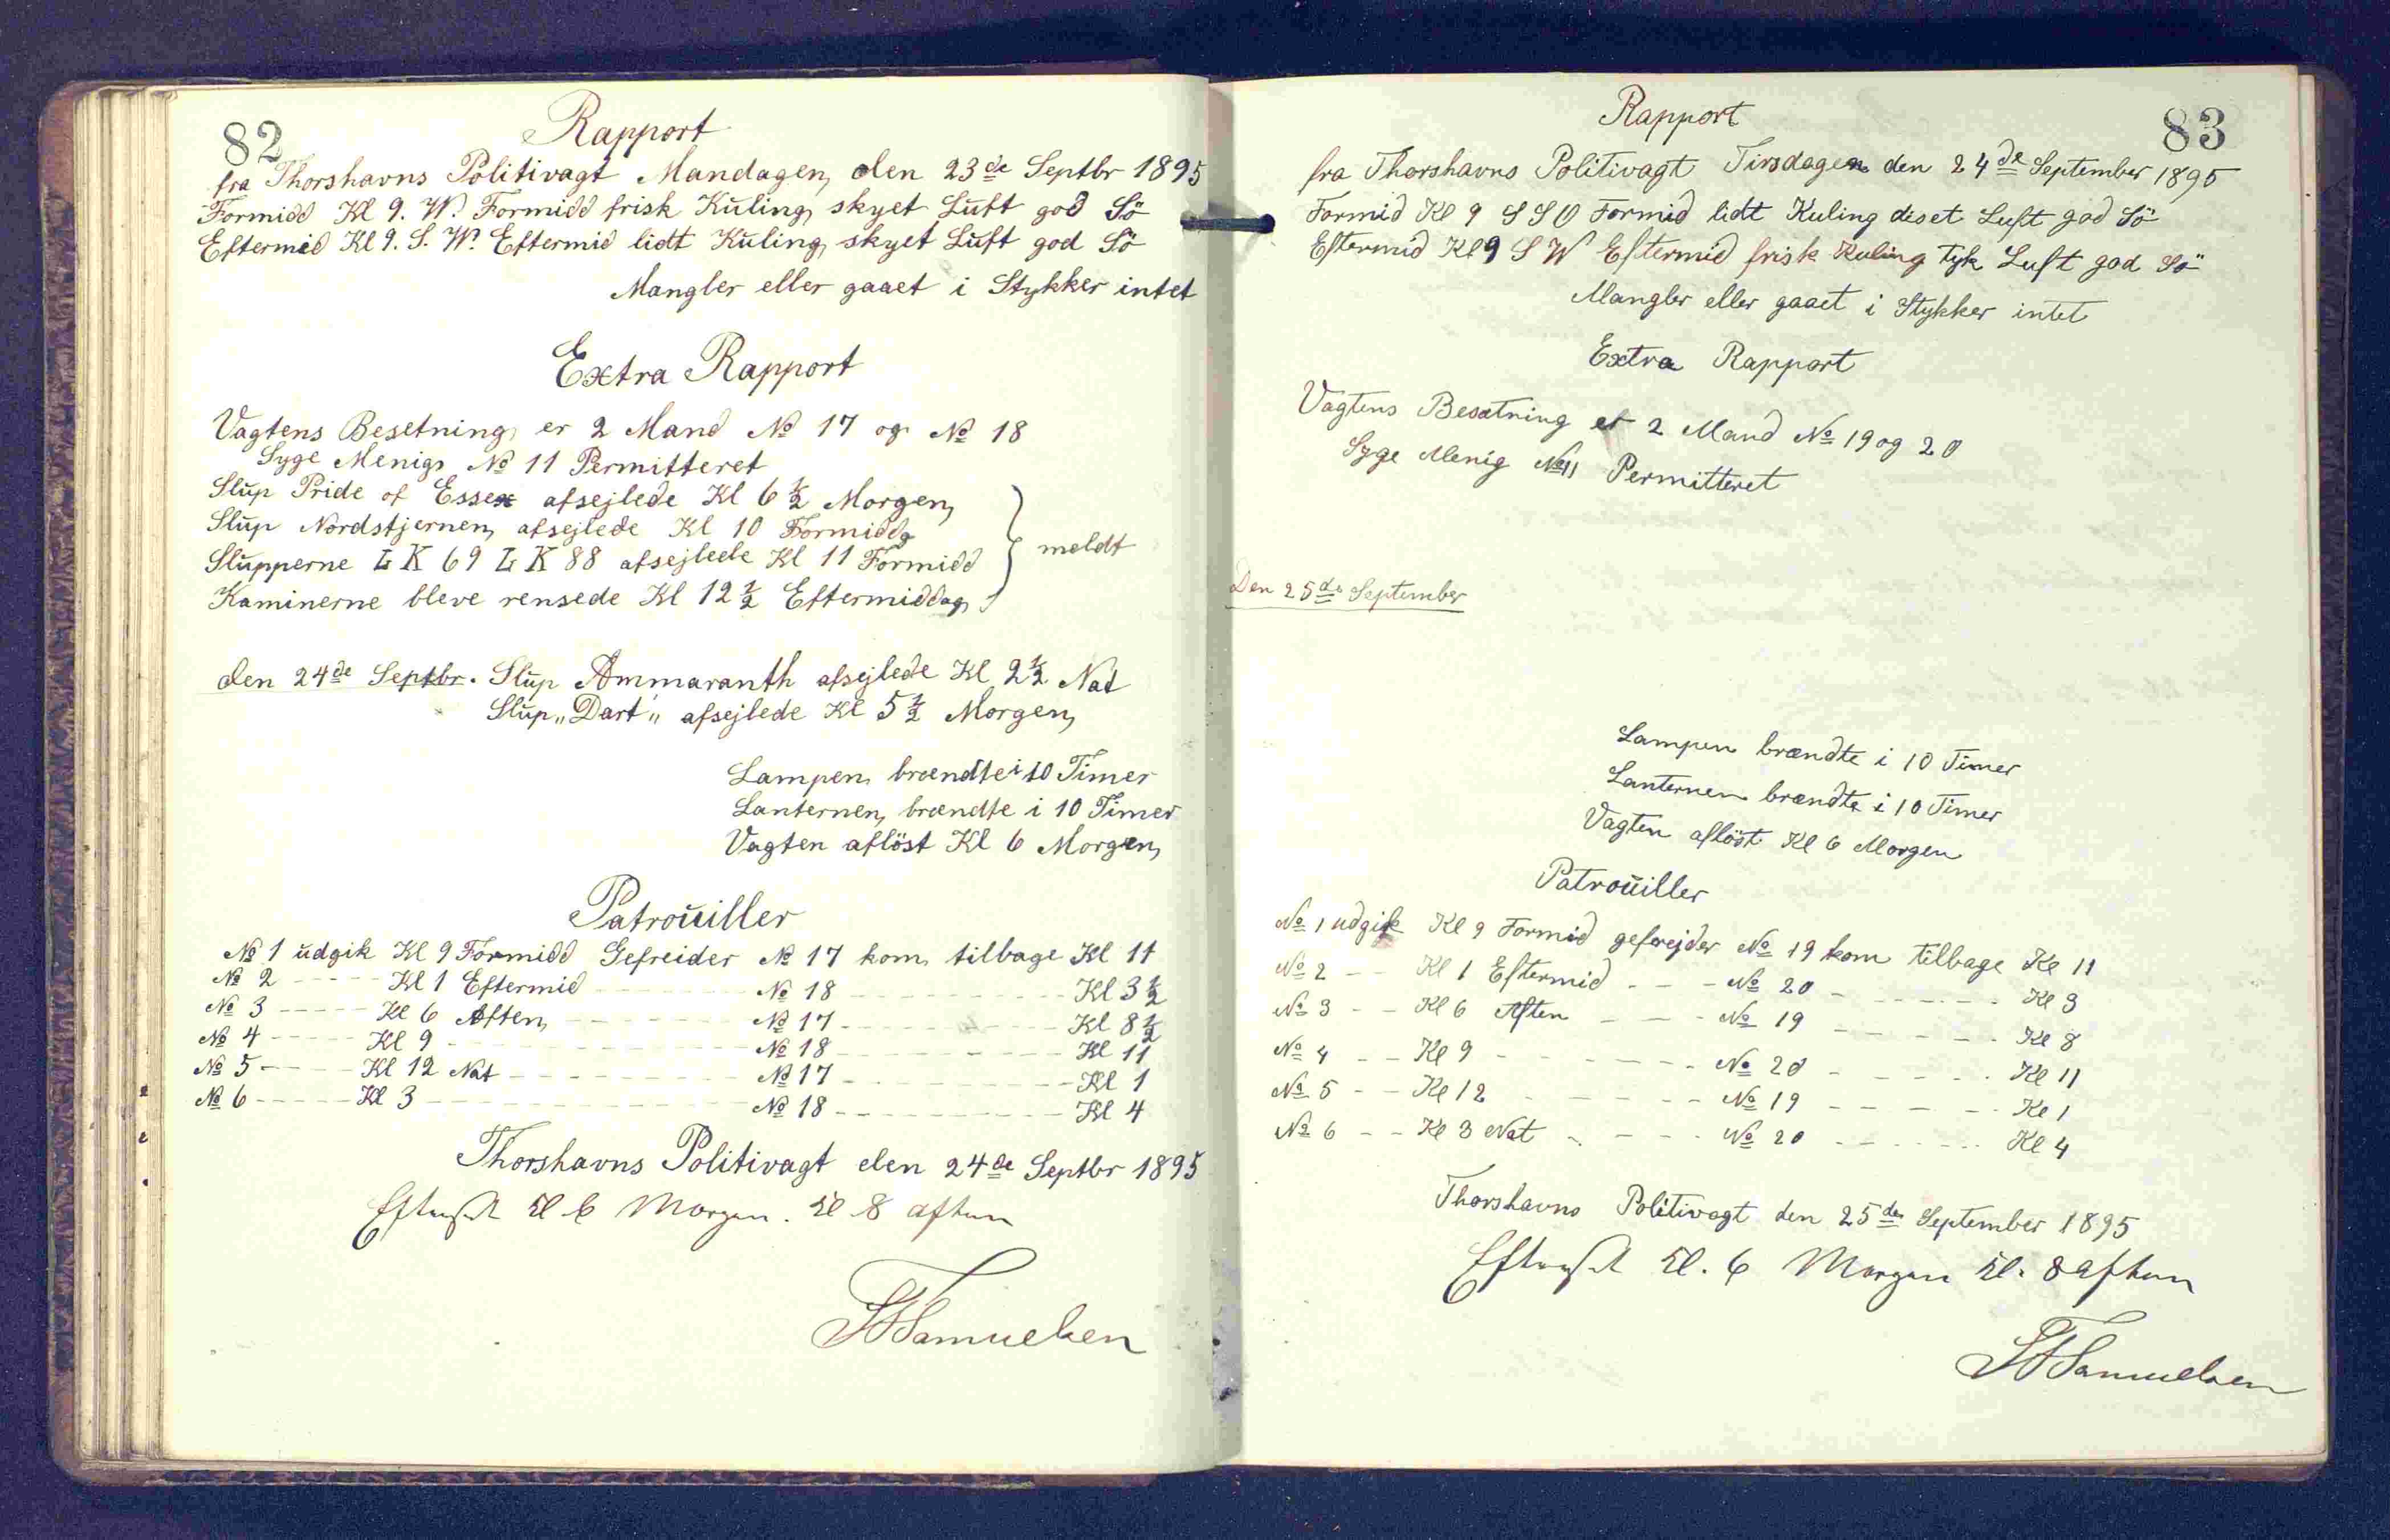 82
Rapport
fra Thorshavns Politivagt Mandagen, den 23de Septbr 1895
Formidd Kl 9. W. Formidd frisk Kuling, skyet Luft god Sö
Eftermid Kl 9. S. W. Eftermid lidt Kuling, skyet Luft god Sö
Mangler eller gaaet i Stykker intet
Extra Rapport
Vagtens Besetning er 2 Mand No 17 og No 18
Syge Menig No 11 Permitteret
Slup Pride of Essex afsejlede Kl 6 1/2 Morgen,
Slup Nordstjernen, afsejlede Kl 10 Formiddg
Slupperne LK 69 LK 88 afsejlede Kl 11 Formidd
Kaminerne bleve rensede Kl 12 1/2 Eftermiddag
} meldt
den 24de Septbr. Slup Ammaranth afsejlede Kl 2 1/2 Nat
Slup „Dart" afsejlede Kl 5 1/2 Morgen,
Lampen brændte i 10 Timer
Lanternen, brændte i 10 Timer
Vagten aflöst Kl 6 Morgen,
Patrouiller
No 1 udgik Kl 9 Formidd Gefreider No 17 kom tilbage Kl 11
No 2 - - - - Kl 1 Eftermid - - - - No 18 - - - - Kl 3 1/2
No 3 - - - - Kl 6 Aften, - - - - No 17 - - - - Kl 8 1/2
No 4 - - - - Kl 9 - - - - No 18 - - - - Kl 11
No 5 - - - - Kl 12 Nat - - - - No 17 - - - - Kl 1
No 6 - - - - Kl 3 - - - - No 18 - - - - Kl 4
Thorshavns Politivagt den 24de Septbr 1895
Kl 6 Morgen. Kl 8 aften
Samuelsen
83
Rapport
fra Thorshavns Politivagt Tirsdagen den 24de September 1895
Formid Kl 9 S S O Formid lidt Kuling diset Luft god Sö
Eftermid Kl 9 S W Eftermid frisk Kuling Tyk Luft god Sö
Mangler eller gaaet i Stykker intet
Extra Rapport
Vagtens Besætning er 2 Mand No 19 og 20
Syge Menig No 11 Permitteret
Den 25de September
Lampen brændte i 10 Timer
Lanternen brændte i 10 Timer
Vagten aflöst Kl 6 Morgen
Patrouiller
No 1 udgik Kl 9 Formid gefrejder No 19 kom tilbage Kl 11
No 2 - - Kl 1 Eftermid - - - No 20 - - - - Kl 3
No 3 - - Kl 6 Aften - - - No 19 - - - - Kl 8
No 4 - - Kl 9 - - - - No 20 - - - - Kl 11
No 5 - - Kl 12 - - - - No 19 - - - - Kl 1
No 6 - - Kl 3 Nat - - - - No 20 - - - - Kl 4
Thorshavns Politivagt den 25de September 1895
Kl. 6 Morgen Kl. 8 aften
Samuelsen